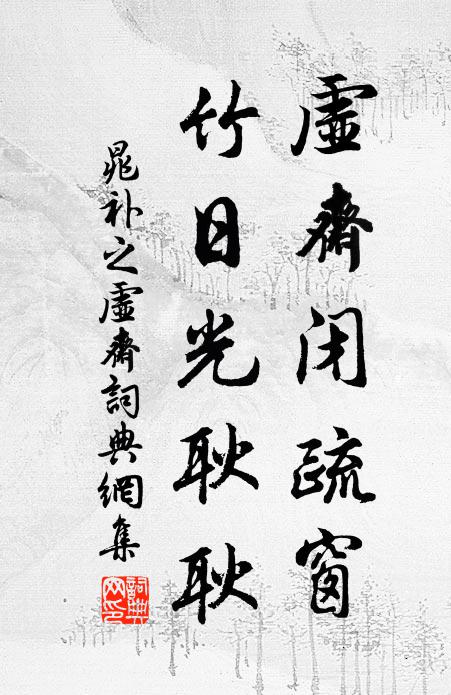 虛齋閉疏窗
竹日光耿耿
晁补之虛齋詞典網集
詞典网印